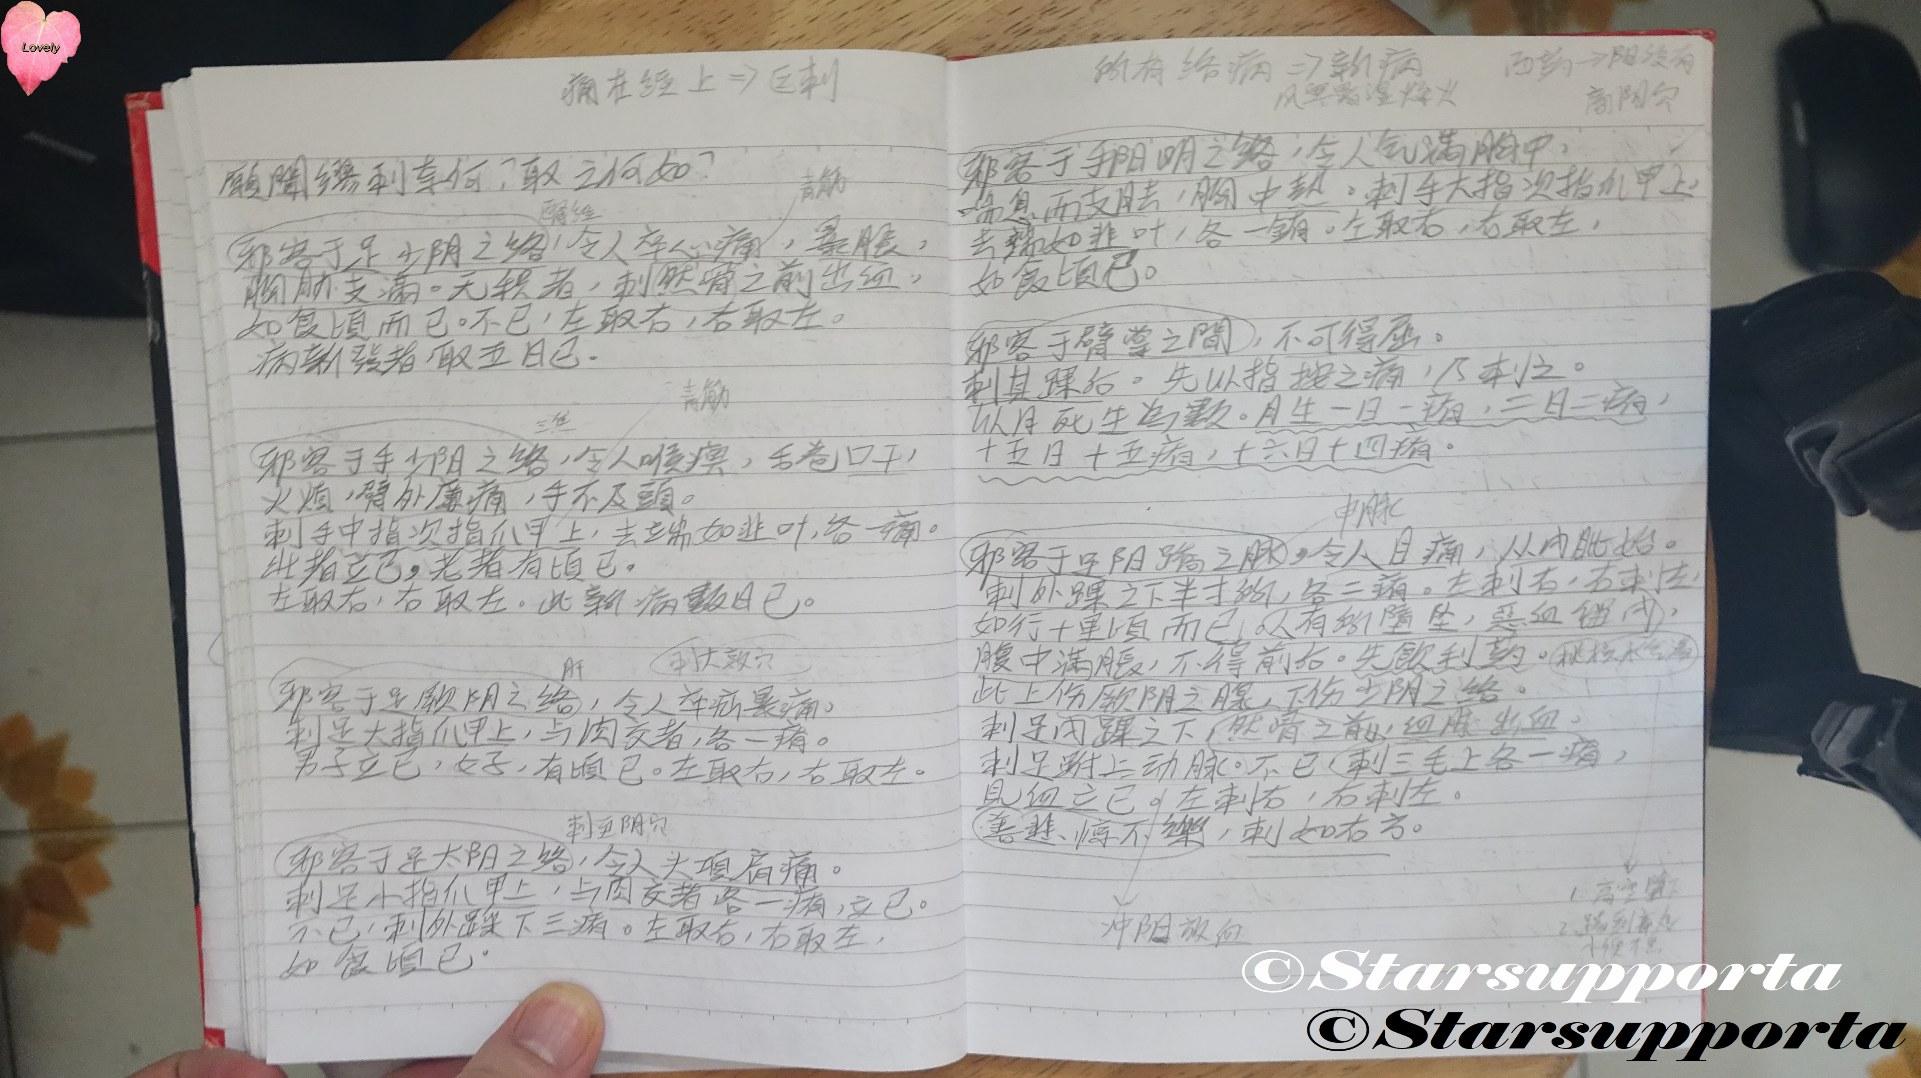 Lovely
病在經上⇒巨刺
願聞繆刺奈何?取之何如?
青筋
邪客于足少阴之络,令人卒心痛,暴脹,
胸脅支滿。无積者,刺然骨之前出血,
如食頃而已。不已,左取右,右取左。
病新發者,取五日已。
青筋
三焦
邪客于手少阴之络,令人喉痹,舌卷口干,
火煩,臂外廉痛,手不及頭。
刺手中指次指爪甲上,去端如韭叶,各一痏。
壯者立已,老者有頃已。
左取右,右取左。此新病數日已。
肝
刺大敦穴
邪客于足厥阴之络,令人卒疝暴痛。
刺足大指爪甲上,与肉交者,各一痏。
男子立已,女子,有頃已。左取右,右取左。
刺至阴穴
邪客于足太阴之络,令人头項肩痛。
刺足小指爪甲上,与肉交者各一痏,立已。
不已,刺外踝下三痏。左取右,右取左,
如食頃已。
所有络病⇒新病
风寒暑湿燥火
商阳穴
邪客于手阳明之络,令人气滿胸中,
喘息而支胠,胸中熱。刺手大指次指爪甲上,
去端如韭叶,各一痏。左取右,右取左,
如食頃已。
邪客于臂掌之間,不可得屈。
刺其踝后。先以指按之痛,乃刺之。
以月死生為數。月生一日一痏,二日二痏,
十五日十五痏,十六日十四痏。
申脉
邪客于足阳蹻之脉,令人目痛,从内眦始。
刺外踝之下半寸所,各二痏。左刺右,右刺左,
如行十里頃而已。人有所墮坠,惡血留内,
腹中滿脹,不得前后。先飲利药。
此上伤厥阴之脉,下伤少阴之络。
刺足内踝之下,然骨之前,血脉出血。
刺足跗上动脉。不已,刺三毛上各一痏,
見血立已。左刺右,右刺左。
善悲、惊不樂,刺如右方。
冲阳放血
©Starsupporta
©Starsupporta